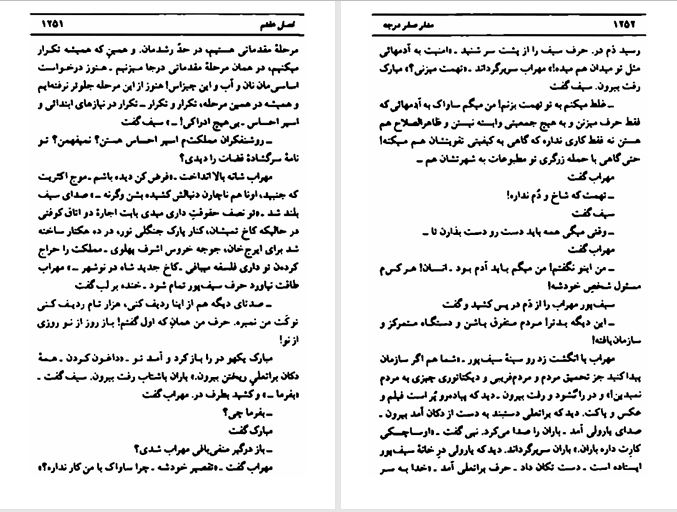 ۱۲۵۱ فصل هفتم
مرحلهٔ مقدماتی هستیم، در حدّ رشدمان. و همین که همیشه تکرار
میکنیم، در همان مرحلهٔ مقدماتی درجا میزنیم ـ هنوز درخواست
اساسی‌مان نان و آب و این چیزاس! هنوز از این مرحله جلوتر نرفته‌ایم
و همیشه در همین مرحله، تکرار و تکرار ـ تکرار در نیازهای ابتدائی و
اسیر احساس ـ بی‌هیچ ادراکی! ـ» سیف گفت
ـ روشنفکران مملکتم اسیر احساس هستن؟ نمیفهمن؟ تو
نامهٔ سرگشادهٔ قضات را دیدی؟
مهراب شانه بالا انداخت ـ «فرض کن دیده باشم ـ موج اکثریت
که جنبید، اونا هم ناچارن دنبالش کشیده بشن وگرنه ـ» صدای سیف
بلند شد ـ «تو نصف حقوقتِ داری میدی بابت اجارهٔ دو اتاق کوفتی
در حالیکه کاخ نمیشان، کنار پارک جنگلی نور، در ده هکتار ساخته
شد برای ایرج‌خان، جوجه خروس اشرف پهلوی ـ مملکت را حراج
کرده‌ن تو داری فلسفه میبافی ـ کاخ جدید شاه در نوشهر ـ» مهراب
طاقت نیاورد حرف سیف‌پور تمام شود ـ خنده بر لب گفت
ـ صدتای دیگه هم از اینا ردیف کنی، هزار تام ردیف کنی
تو کَتِ من نمیره. حرف من همانِ که اول گفتم! باز روز از نو روزی
از نو!
مبارک یکهو در را باز کرد و آمد تو ـ «داغون کردن ـ همهٔ
دکان براتعلیِ ریختن بیرون.» باران باشتاب رفت بیرون. سیف گفت ـ
«بفرما ـ» و کشید بطرف در. مهراب گفت
ـ بفرما چی؟
مبارک گفت
ـ باز درگیر منفی‌بافی مهراب شدی؟
مهراب گفت ـ «تقصیر خودشه ـ چرا ساواک با من کار نداره؟»
مدار صفر درجه ۱۲۵۲
رسید دَمِ در. حرف سیف را از پشت سر شنید ـ «امنیت به آدمهائی
مثل تو میدان هم میده!» مهراب سربرگرداند ـ «تهمت میزنی؟» مبارک
رفت بیرون. سیف گفت
ـ غلط میکنم به تو تهمت بزنم! من میگم ساواک به آدمهائی که
فقط حرف میزنن و به هیچ جمعیتی وابسته نیستن و ظاهرالصلاح هم
هستن نه فقط کاری نداره که گاهی به کیفیتی تقویتشان هم میکنه!
حتی گاهی با حمله زرگری تو مطبوعات به شهرتشان هم ـ
مهراب گفت
ـ تهمت که شاخ و دُم نداره!
سیف گفت
ـ وقتی میگی همه باید دست رو دست بذارن تا ـ
مهراب گفت
ـ من اینو نگفتم! من میگم باید آدم بود ـ انسان! هر کس م
مسئول شخصِ خودشه!
سیف‌پور مهراب را از دَمِ در پس کشید و گفت
ـ این دیگه بدتر! مردم متفرق باشن و دستگاه متمرکز و
سازمان یافته!
مهراب با انگشت زد رو سینهٔ سیف‌پور ـ «شما هم اگر سازمان
پیدا کنید جز تحمیق مردم و مردم‌فریبی و دیکتاتوری چیزی به مردم
نمیدین!» و در را گشود و رفت بیرون ـ دید که پیاده‌رو پُر است فیلم و
عکس و پاکت. دید که براتعلی دستبند به دست از دکان آمد بیرون ـ
صدای یارولی آمد ـ باران را صدا می‌کرد. نبی گفت ـ «اوساچسکی
کارِت داره باران.» باران سربرگرداند. دید که یارولی درِ خانهٔ سیف‌پور
ایستاده است ـ دست تکان داد ـ حرف براتعلی آمد ـ «خدا به سر